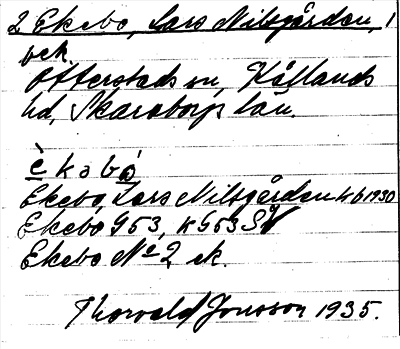 2 Ekebo, Lars Nilsgården, 1
bek.
Otterstads sn, Kållands
hd, Skaraborgs län.
è k ə b ó
Ekebo, Lars Nilsgården kb 1930
Ekebo G53, K G53 SV
Ekebo No 2 ek.
Thorvald Jonsson 1935.